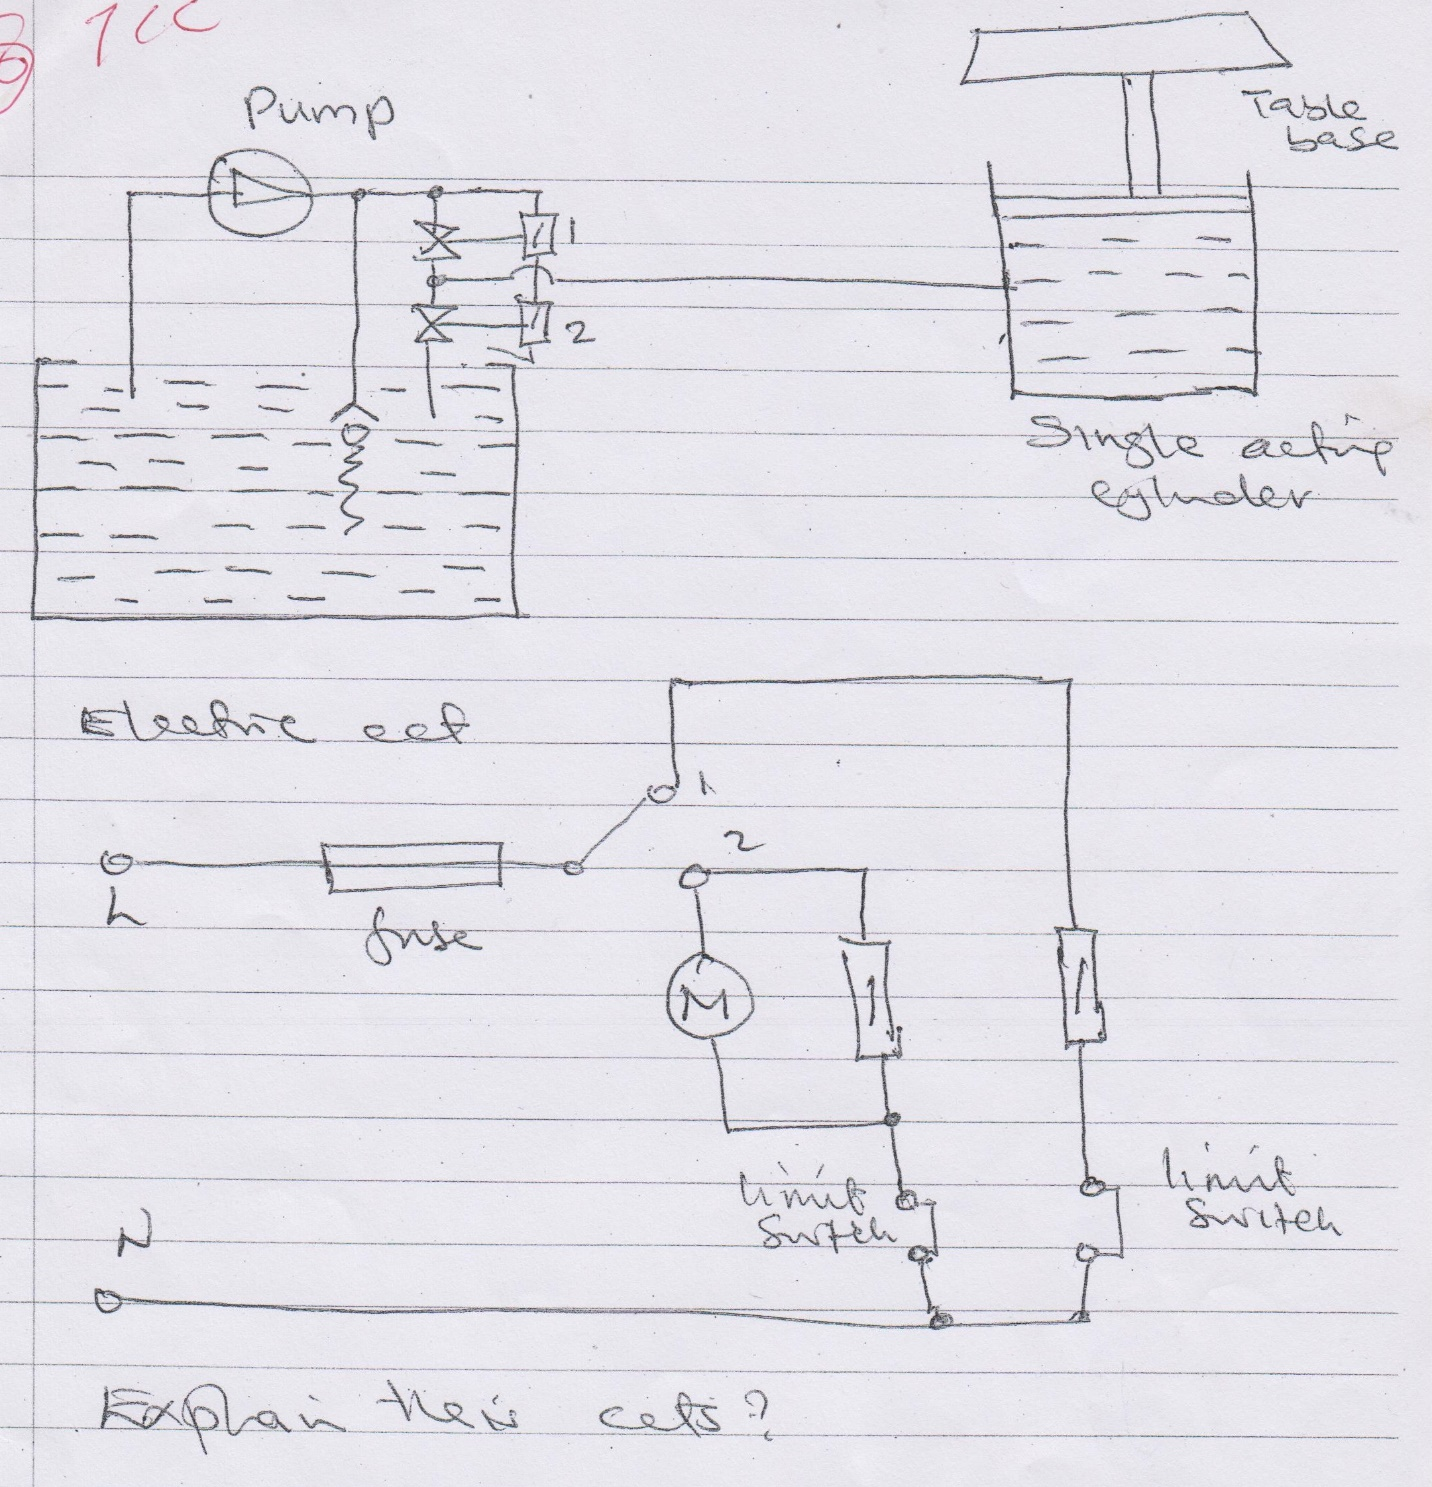 Pump
Table
base
1
2
Single acting
cylinder
Electric cct
1
2
L
fuse
M
limit
switch
limit
switch
N
Explain their ccts?